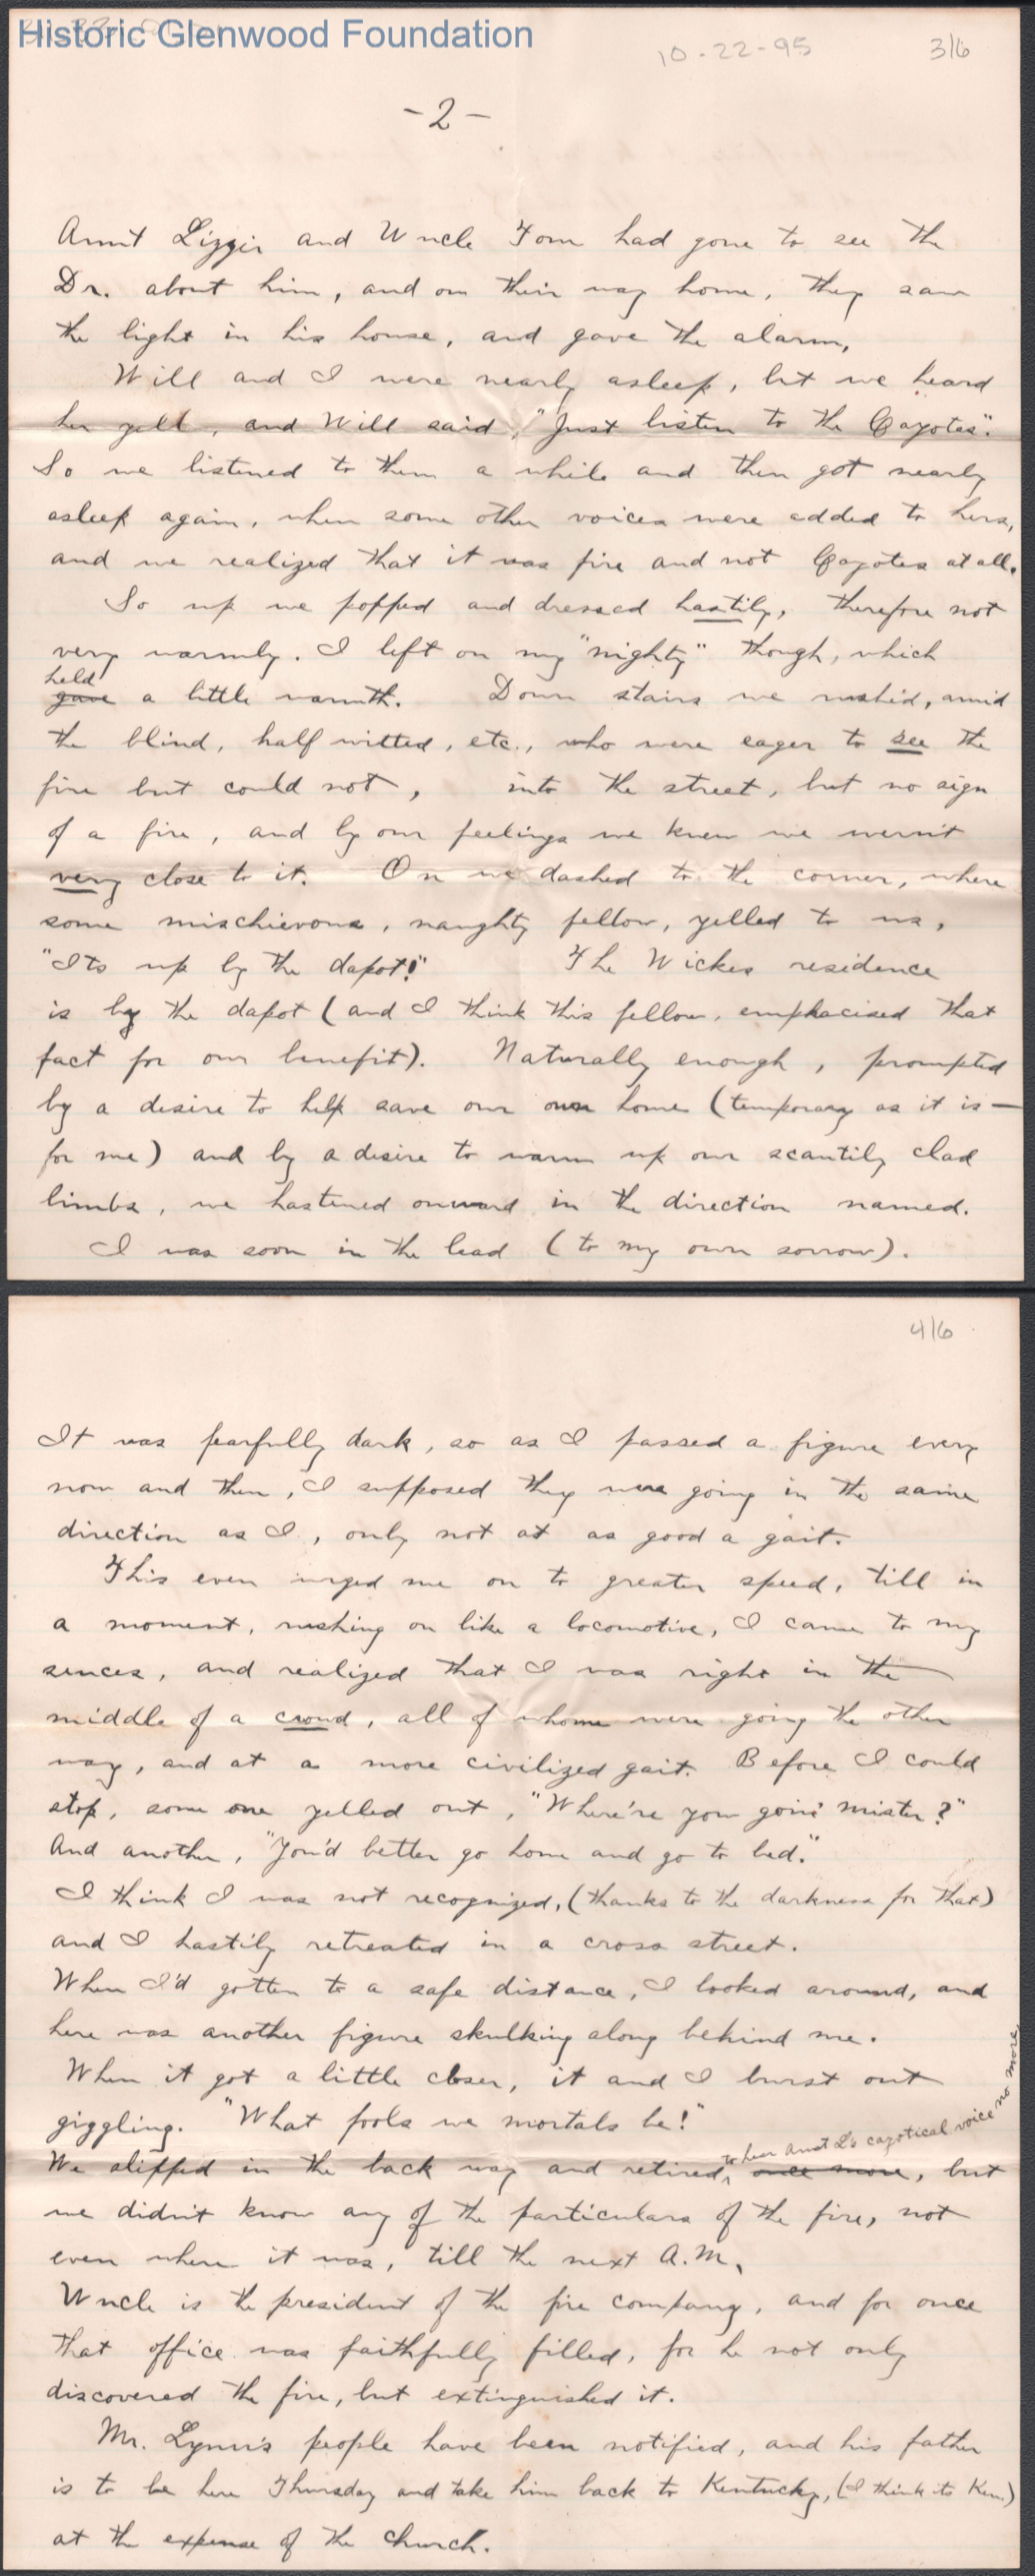 Historic Glenwood Foundation
10-22-95
3/6
-2-
Aunt Lizzie and Uncle Tom had gone to see the
Dr. about him, and on their way home, they saw
the light in his house, and gave the alarm,
Will and I were nearly asleep, but we heard
her yell, and Will said, "Just listen to the Cayotes".
So we listened to them a while and then got nearly
asleep again, when some other voices were added to hers,
and we realized that it was fire and not Cayotes at all.
So up we popped and dressed hastily, therefore not
very warmly. I left on my "nighty" though, which
held
gave a little warmth. Down stairs we rushed, amid
the blind, half witted, etc., who were eager to see the
fire but could not, into the street, but no sign
of a fire, and by our feelings we knew we wern't
very close to it. On we dashed to the corner, where
some mischievous, naughty fellow, yelled to us,
"Its up by the dapot!" The Wickes residence
is by the dapot (and I think this fellow, emphacised that
fact for our benefit). Naturally enough, prompted
by a desire to help save our own home (temporary as it is—
for me) and by a desire to warm up our scantily clad
limbs, we hastened onward in the direction named.
I was soon in the lead (to my own sorrow).
4/6
It was fearfully dark, so as I passed a figure every
now and then, I supposed they were going in the same
direction as I, only not at as good a gait.
This even urged me on to greater speed, till in
a moment, rushing on like a locomotive, I came to my
sences, and realized that I was right in the
middle of a crowd, all of whome were going the other
way, and at a more civilized gait. Before I could
stop, some one yelled out, "Where're you goin' mister?"
And another, "You'd better go home and go to bed."
I think I was not recognized, (thanks to the darkness for that)
and I hastily retreated in a cross street.
When I'd gotten to a safe distance, I looked around, and
here was another figure skulking along behind me.
When it got a little closer, it and I burst out
giggling. "What fools we mortals be!"
to hear Aunt L's cayotical voice no more,
We slipped in the back way and retired, once more, but
we didn't know any of the particulars of the fire, not
even where it was, till the next A.M.
Uncle is the president of the fire company, and for once
that office was faithfully filled, for he not only
discovered the fire, but extinguished it.
Mr. Lynn's people have been notified, and his father
is to be here Thursday and take him back to Kentucky, (I think its Ken.)
at the expense of the church.